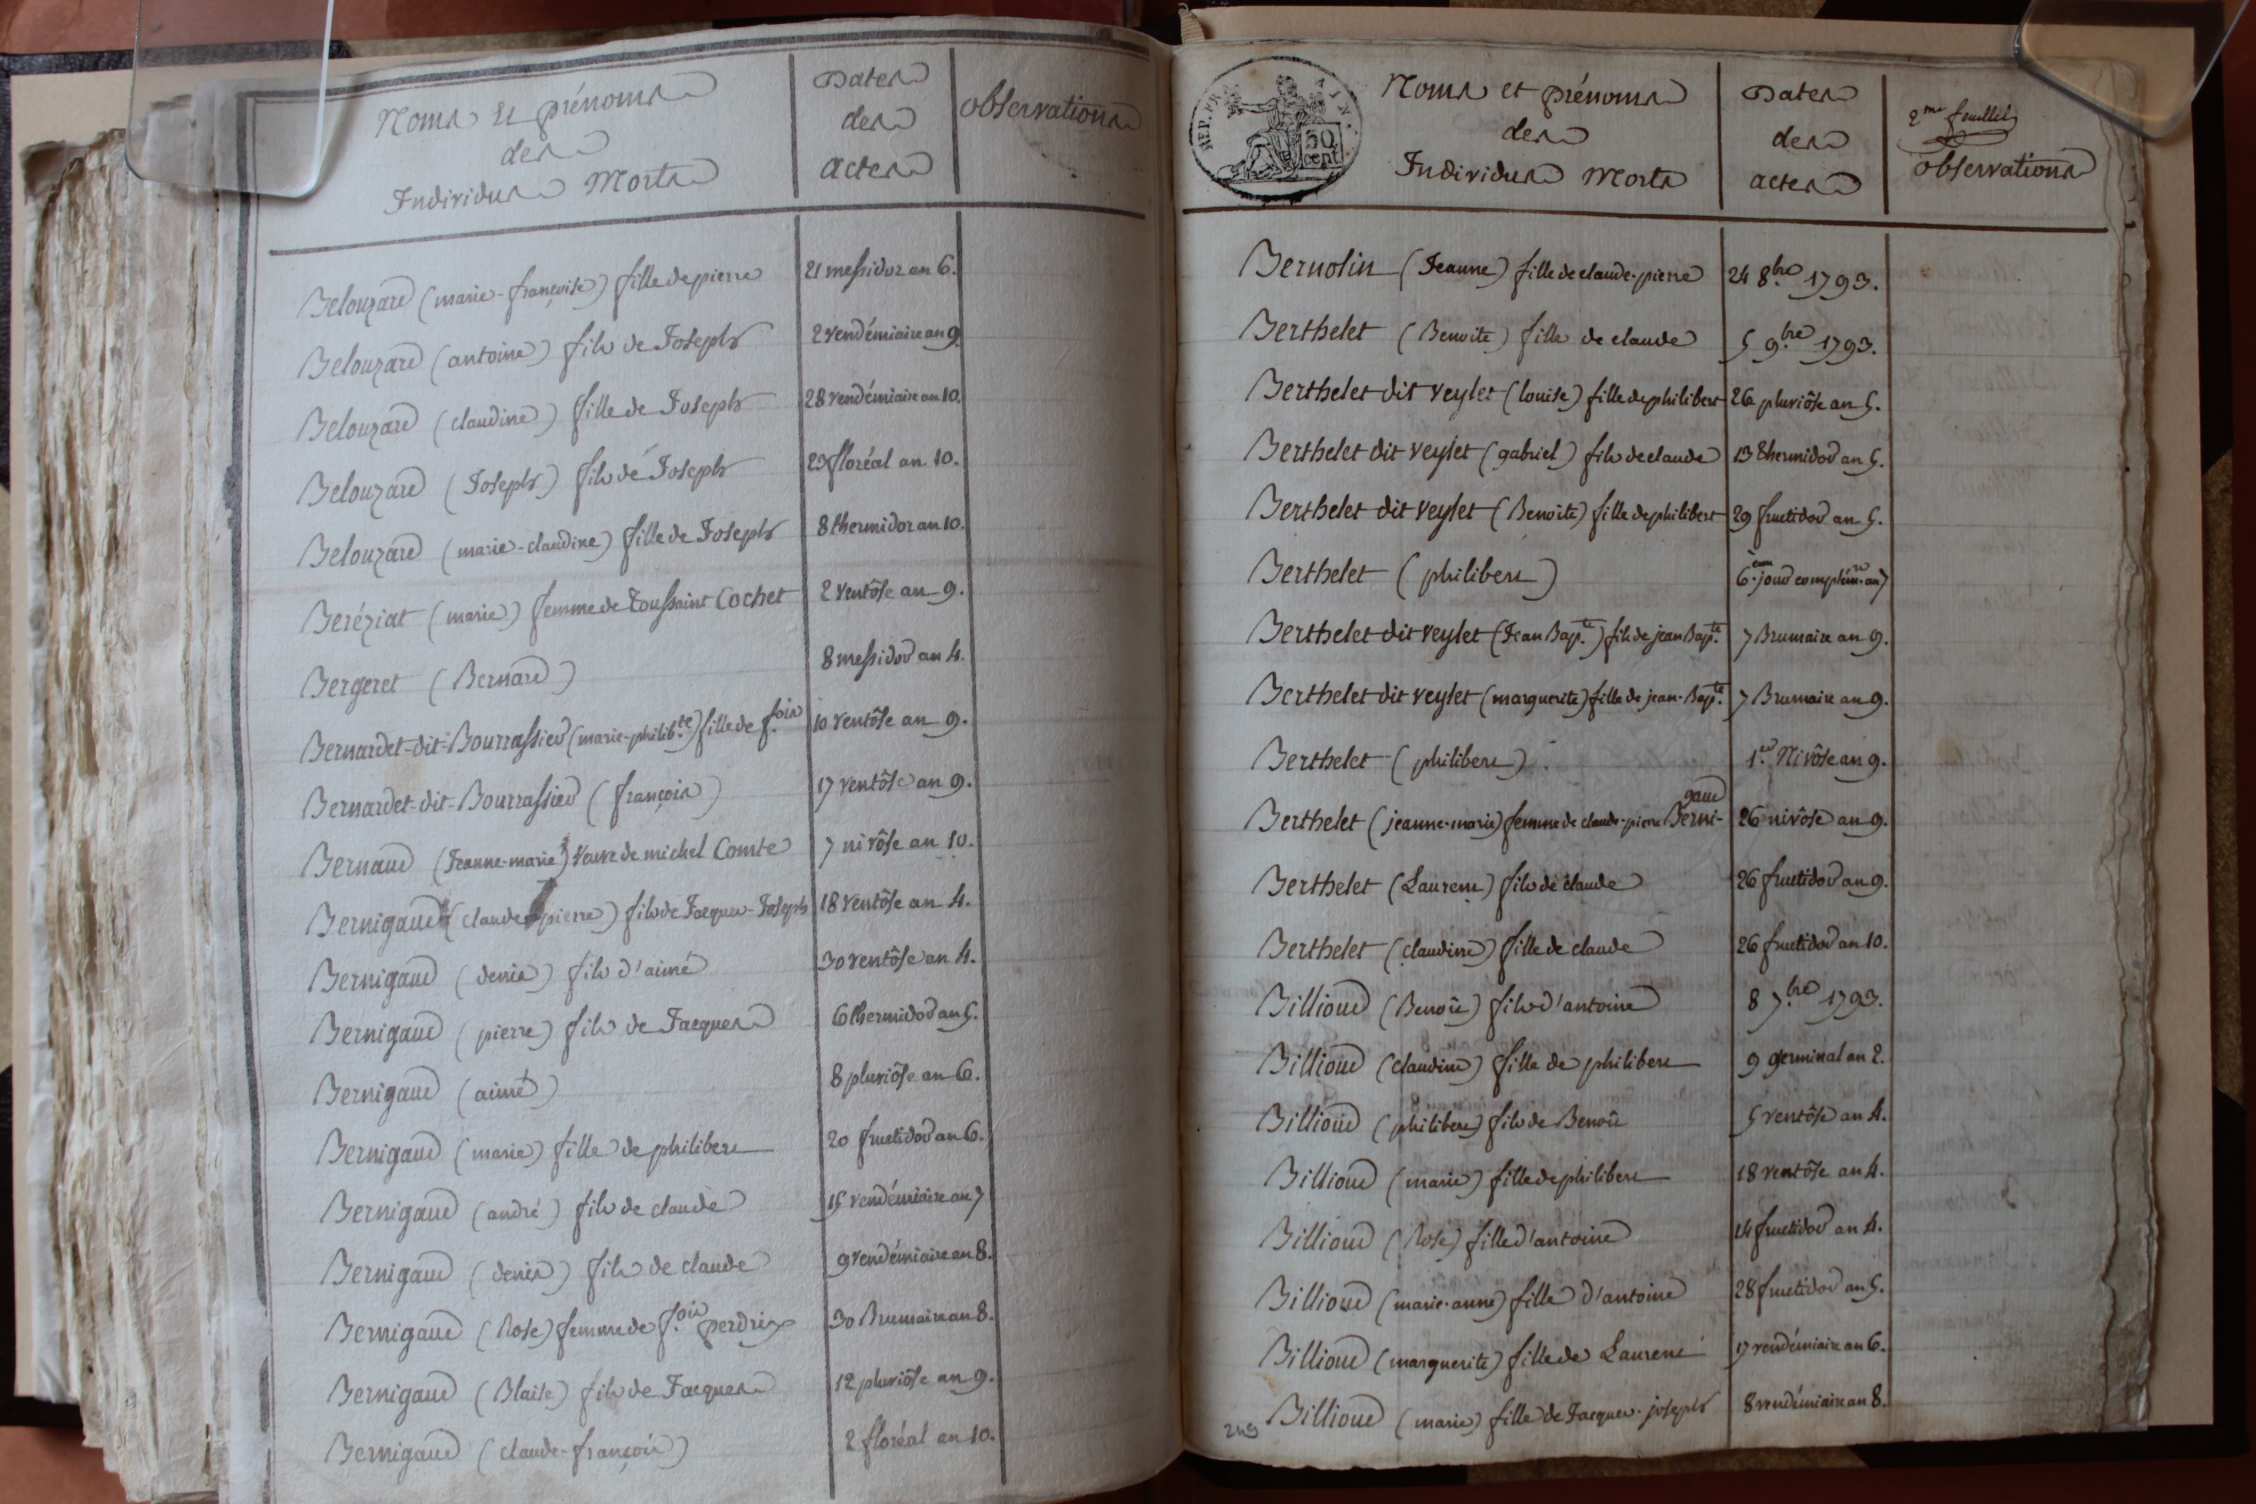 Noms et prénoms
des
Individus Morts
Dates
des
actes
observations
Belouzard (marie-françoise) fille de pierre 21 messidor an 6.
Belouzard (antoine) fils de Joseph 2 vendémiaire an 9.
Belouzard (claudine) fille de Joseph 28 vendémiaire an 10.
Belouzard (Joseph) fils de Joseph 29 floréal an 10.
Belouzard (marie-claudine) fille de Joseph 8 thermidor an 10.
Beréziat (marie) femme de Toussaint Cochet 2 ventôse an 9.
Bergeret (Bernard) 8 messidor an 4.
Bernardet-dit-Bourrassier (marie-philib.te) fille de f.ois 10 ventôse an 9.
Bernardet-dit-Bourrassier (françois) 17 ventôse an 9.
Bernaud (Jeanne-marie) veuve de michel Comte 7 nivôse an 10.
Bernigaud (claude-pierre) fils de Jacques-Joseph 18 ventôse an 4.
Bernigaud (denis) fils d'aimé 30 ventôse an 4.
Bernigaud (pierre) fils de Jacques 6 thermidor an 5.
Bernigaud (aimé) 8 pluviôse an 6.
Bernigaud (marie) fille de philibert 20 fructidor an 6.
Bernigaud (andré) fils de claude 15 vendémiaire an 7
Bernigaud (denis) fils de claude 9 vendémiaire an 8.
Bernigaud (Rose) femme de f.ois perdrix 30 Brumaire an 8.
Bernigaud (Blaise) fils de Jacques 12 pluviôse an 9.
Bernigaud (claude-françois) 2 floréal an 10.
REP. FRA
50
cent
Noms et prénoms
des
Individus Morts
Dates
des
actes
2.me feuillet
observations
Bernolin (Jeanne) fille de claude-pierre 24 8.bre 1793.
Berthelet (Benoite) fille de claude 5 9.bre 1793.
Berthelet dit veylet (louise) fille de philibert 26 pluviôse an 5.
Berthelet dit veylet (gabriel) fils de claude 13 thermidor an 5.
Berthelet dit veylet (Benoite) fille de philibert 29 fructidor an 5.
Berthelet (philibert) 6.ème jour complém.re an 7
Berthelet dit veylet (Jean Bap.te) fils de jean Bap.te 7 Brumaire an 9.
Berthelet dit veylet (marguerite) fille de jean-Bap.te 7 Brumaire an 9.
Berthelet (philibert) 1.er Nivôse an 9.
Berthelet (jeanne-marie) femme de claude-pierre Berni-gaud 26 nivôse an 9.
Berthelet (Laurent) fils de claude 26 fructidor an 9.
Berthelet (claudine) fille de claude 26 fructidor an 10.
Billioud (Benoît) fils d'antoine 8 7.bre 1793.
Billioud (claudine) fille de philibert 9 germinal an 2.
Billioud (philibert) fils de Benoît 5 ventôse an 4.
Billioud (marie) fille de philibert 18 ventôse an 4.
Billioud (Rose) fille d'antoine 14 fructidor an 4.
Billioud (marie-anne) fille d'antoine 28 fructidor an 5.
Billioud (marguerite) fille de Laurent 17 vendémiaire an 6.
Billioud (marie) fille de Jacques-joseph 8 vendémiaire an 8.
249